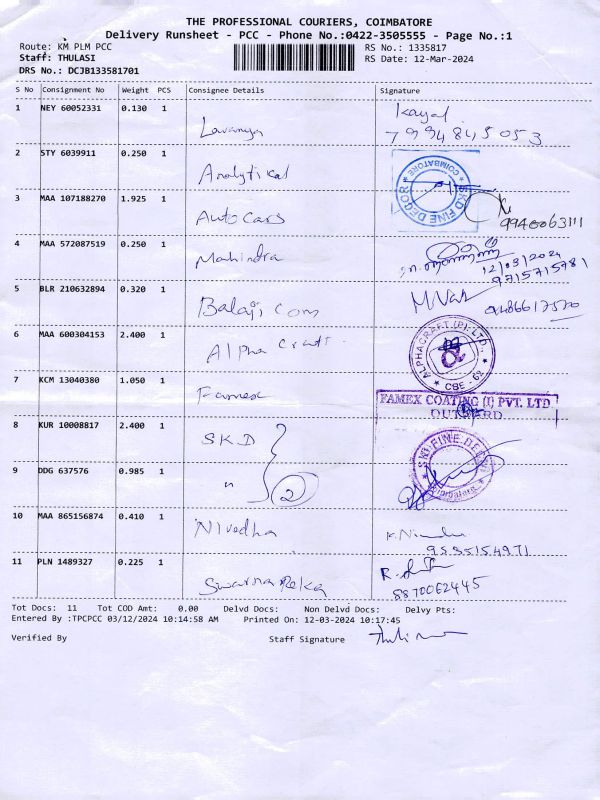 THE PROFESSIONAL COURIERS, COIMBATORE
Delivery Runsheet - PCC - Phone No.:0422-3505555 - Page No.:1
Route: KM PLM PCC
RS No.: 1335817
Staff: THULASI
RS Date: 12-Mar-2024
DRS No.: DCJB133581701
S No Consignment No Weight PCS Consignee Details Signature
1 NEY 60052331 0.130 1 Lavanya Kayal
7994845053
2 STY 6039911 0.250 1 Analytical
COIMBATORE SKD FINE DECOR
3 MAA 107188270 1.925 1 Auto Cars
4 MAA 572087519 0.250 1 Mahindra
12/03/2024
9715715781
5 BLR 210632894 0.320 1 Balaji Com
6 MAA 600304153 2.400 1 Alpha Craft
ALPHACRAFT (P) LTD. CBE - 62
7 KCM 13040380 1.050 1 Famex
FAMEX COATING (I) PVT. LTD
OUTWARD
8 KUR 10008817 2.400 1 SKD
SKD FINE DECOR
9 DDG 637576 0.985 1 " 2
10 MAA 865156874 0.410 1 Nivedha
11 PLN 1489327 0.225 1 Swarna Reka
Tot Docs: 11 Tot COD Amt: 0.00 Delvd Docs: Non Delvd Docs: Delvy Pts:
Entered By :TPCPCC 03/12/2024 10:14:58 AM Printed On: 12-03-2024 10:17:45
Verified By Staff Signature